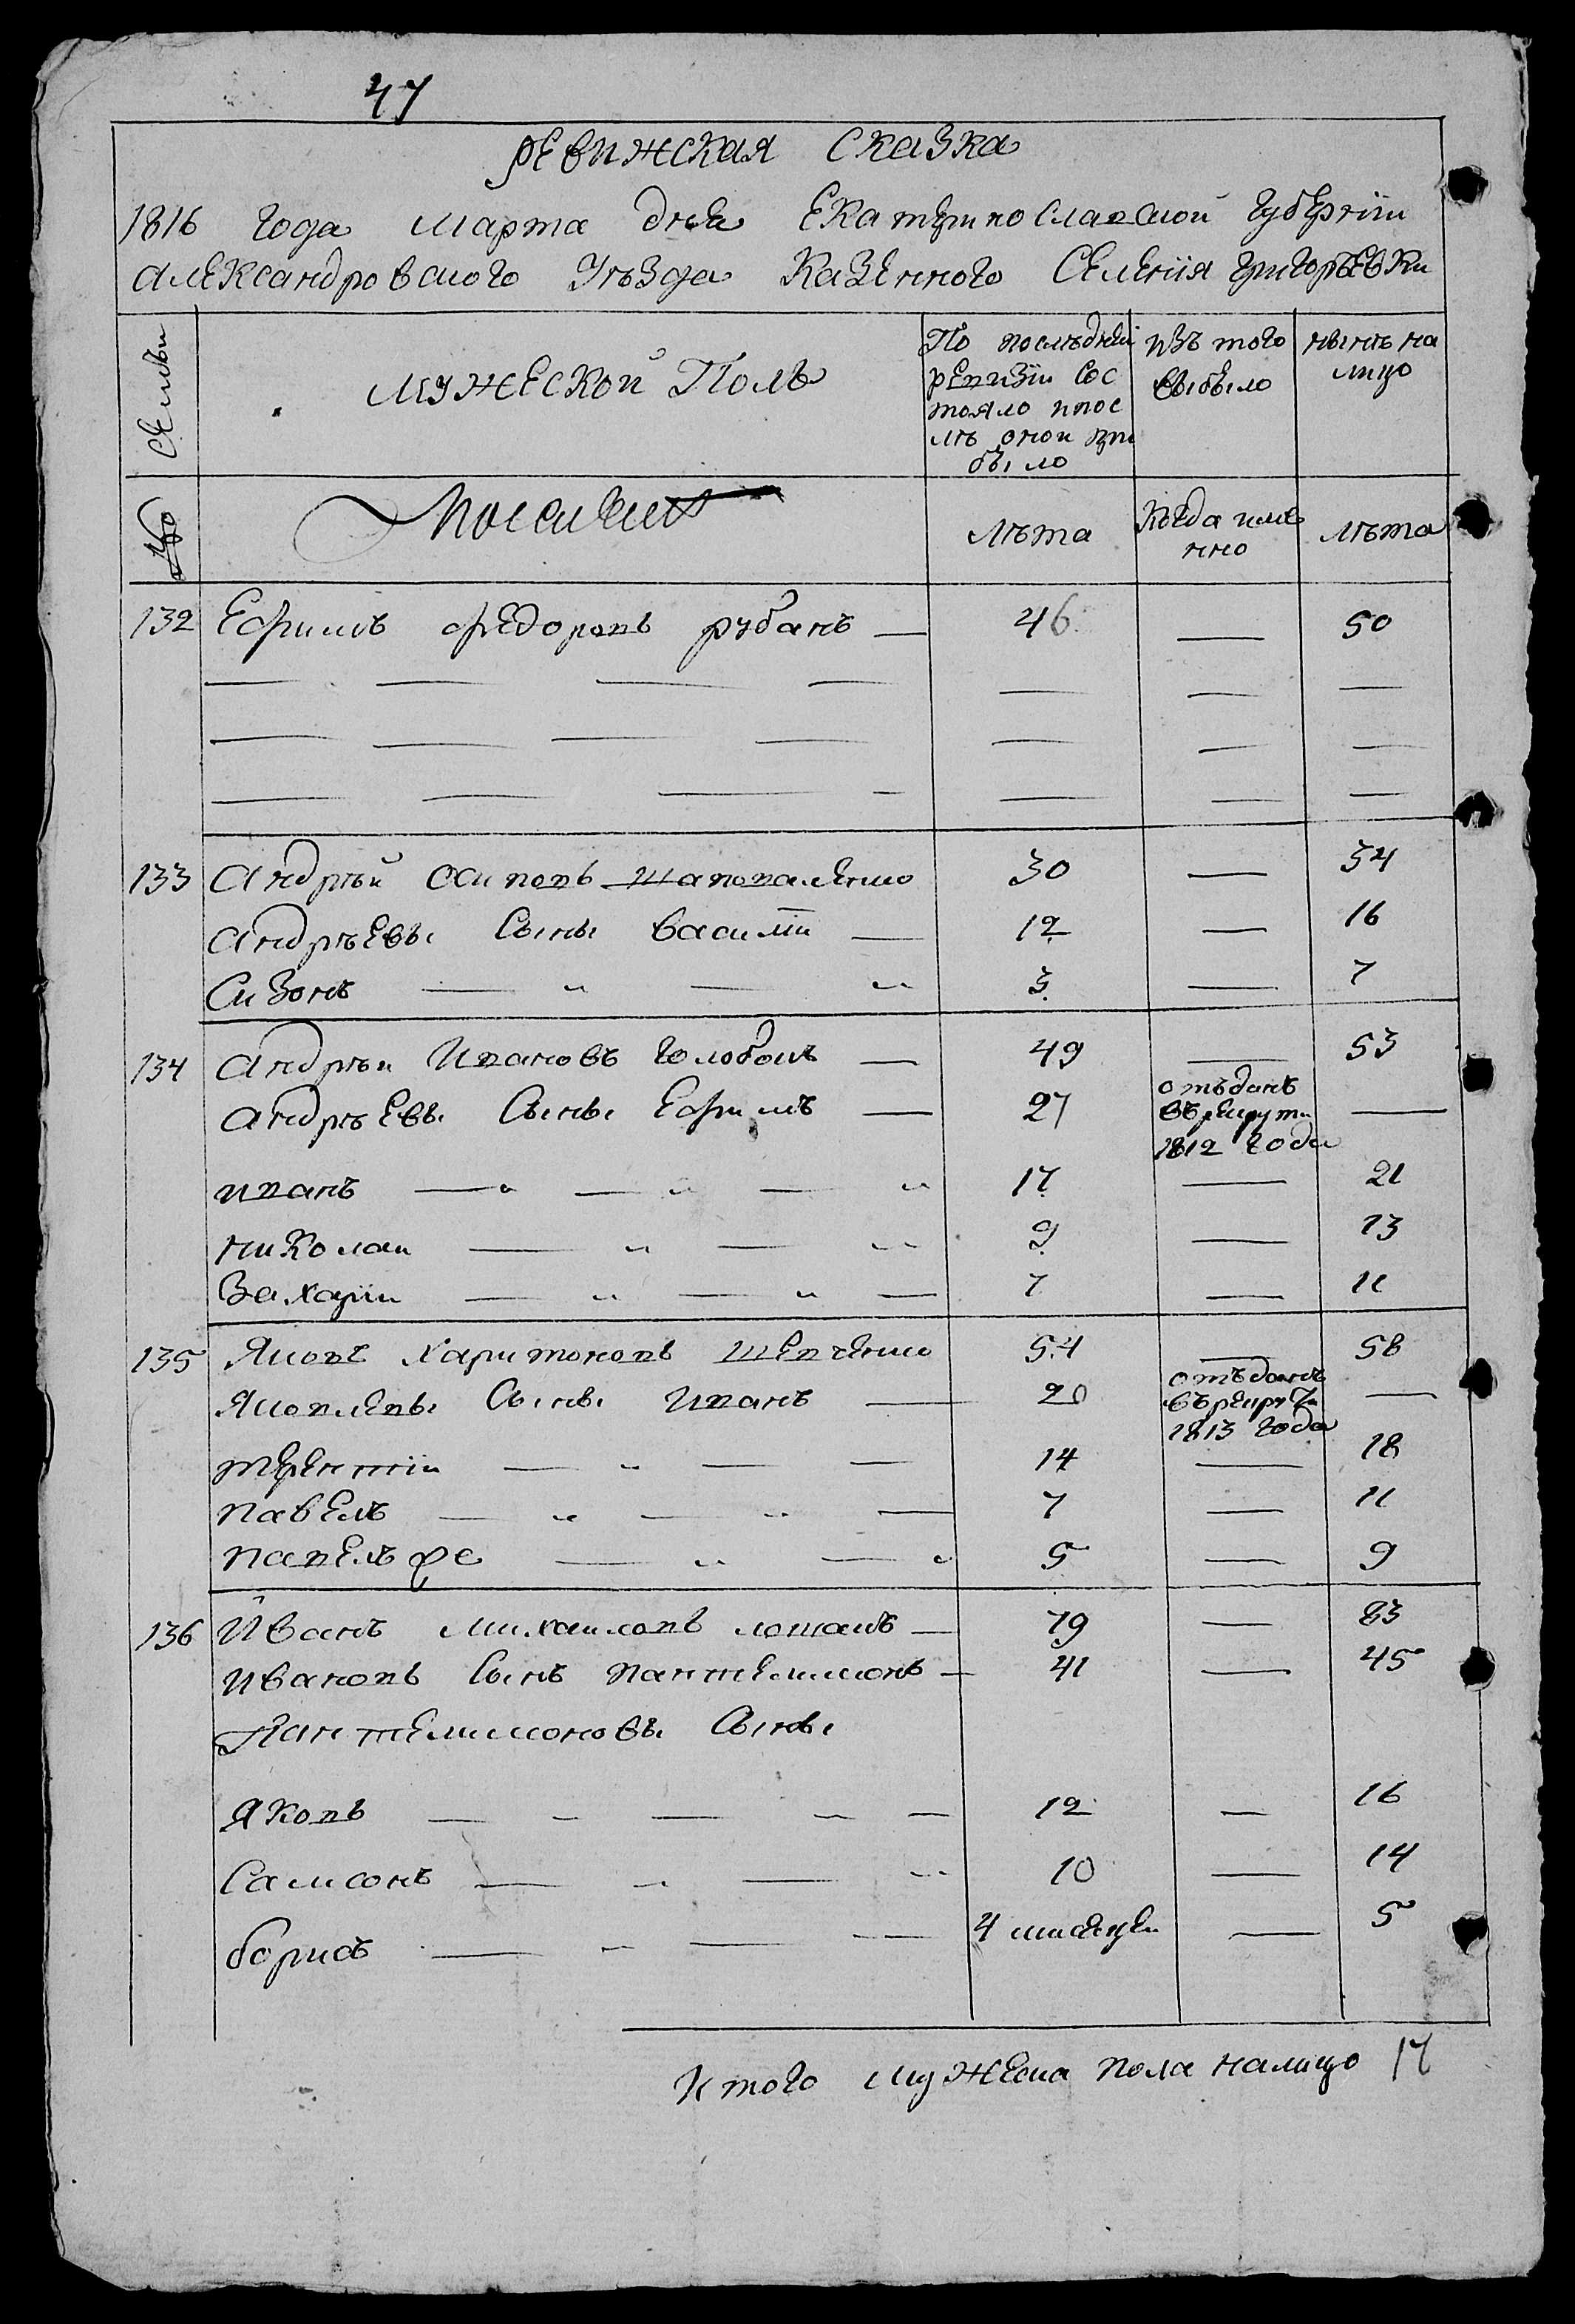 47
РЕВИЖСКАЯ СКАЗКА
1816 года марта дня Екатеринославской губернiи
Александровского уѣзда казенного селенiя григорьевки
Семьи
мужеской Полъ
По послѣдней
ревизiи сос
тояло ипос
лѣ оной при
было
изъ того
выбыло
нынѣ на
лицо
Лѣта
Когда име
нно
лѣта
132 Ефимъ федоровъ рубанъ — 46 — 50
— — — — — — —
— — — — — — —
— — — — — — —
133 андрѣй осиповъ шаповаленко 30 — 34
андрѣевы сыны васил​iй — 12 — 16
Сизонъ — „ — „ 3 — 7
134 андрѣй Ивановъ голобокъ — 49 — 53
андрѣевы сыны Ефимъ — 27 отъданъ въ рекруты 1812 года —
иванъ — „ — „ — „ 17 — 21
николаи — „ — „ 9 — 13
Захарiи — „ — „ — 7 — 11
135 Яковъ харитоновъ шевченко 54 — 58
Яковлевы сыны Иванъ — 20 отъданъ въ рекруты 1813 года —
терентiи — „ — — 14 — 18
павелъ — „ — „ — 7 — 11
павелъ же — „ — „ 5 — 9
136 Иванъ михаиловъ лошакъ — 79 — 83
Ивановъ сынъ пантелимонъ — 41 — 45
Пантелимоновы сыны
Яковъ — — — — — 12 — 16
Самсонъ — „ — „ 10 — 14
борисъ — „ — — 4 мисяцеи — 5
Итого мужеска пола налицо 17